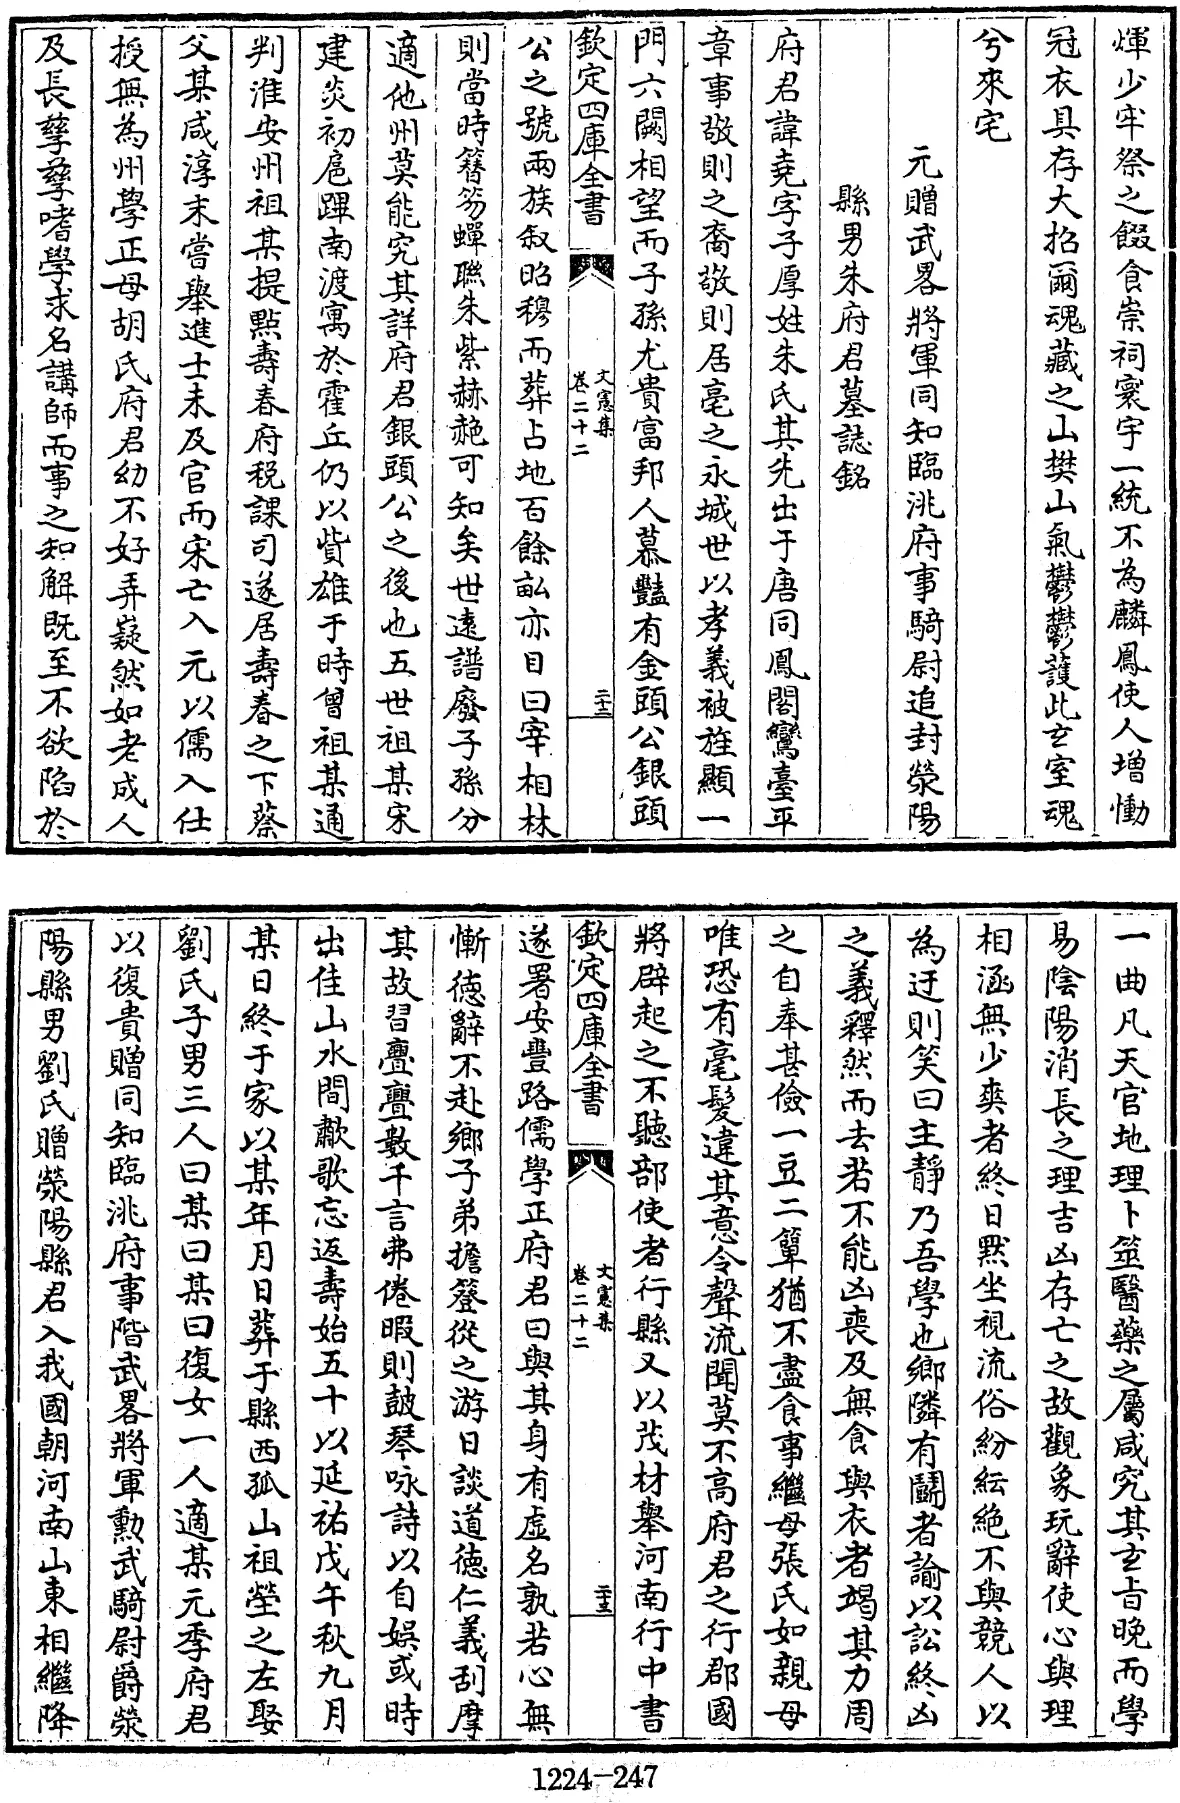 煇少牢祭之餟食崇祠寰宇一統不為麟鳳使人增慟
冠衣具存大招爾魂藏之山樊山氣鬱鬱護此玄室魂
兮來宅
元贈武畧將軍同知臨洮府事騎尉追封滎陽
縣男朱府君墓誌銘
府君諱堯字子厚姓朱氏其先出于唐同鳳閣鸞臺平
章事敬則之裔敬則居亳之永城世以孝義被旌顯一
門六闕相望而子孫尤貴富邦人慕豔有金頭公銀頭
欽定四庫全書
文憲集
卷二十二
二十二
公之號兩族叙昭穆而葬占地百餘畝亦目曰宰相林
則當時簪笏蟬聯朱紫赫赩可知矣世遠譜廢子孫分
適他州莫能究其詳府君銀頭公之後也五世祖某宋
建炎初扈蹕南渡寓於霍丘仍以貲雄于時曾祖某通
判淮安州祖某提點壽春府税課司遂居壽春之下蔡
父某咸淳末嘗舉進士未及官而宋亡入元以儒入仕
授無為州學正母胡氏府君幼不好弄嶷然如老成人
及長孳孳嗜學求名講師而事之知解既至不欲陷於
一曲凡天官地理卜筮醫藥之屬咸究其玄旨晚而學
易陰陽消長之理吉凶存亡之故觀象玩辭使心與理
相涵無少爽者終日黙坐視流俗紛紜絶不與競人以
為迂則笑曰主靜乃吾學也鄉隣有鬬者諭以訟終凶
之義釋然而去若不能凶喪及無食與衣者竭其力周
之自奉甚儉一豆二簞猶不盡食事繼母張氏如親母
唯恐有毫髮違其意令聲流聞莫不高府君之行郡國
將辟起之不聽部使者行縣又以茂材舉河南行中書
欽定四庫全書
文憲集
卷二十二
二十三
遂署安豐路儒學正府君曰與其身有虚名孰若心無
慚德辭不赴鄉子弟擔簦從之游日談道德仁義刮摩
其故習亹亹數千言弗倦暇則鼓琴咏詩以自娱或時
出佳山水間歗歌忘返壽始五十以延祐戊午秋九月
某日終于家以某年月日葬于縣西孤山祖塋之左娶
劉氏子男三人曰某曰某曰復女一人適某元季府君
以復貴贈同知臨洮府事階武畧將軍勲武騎尉爵滎
陽縣男劉氏贈滎陽縣君入我國朝河南山東相繼降
1224-247